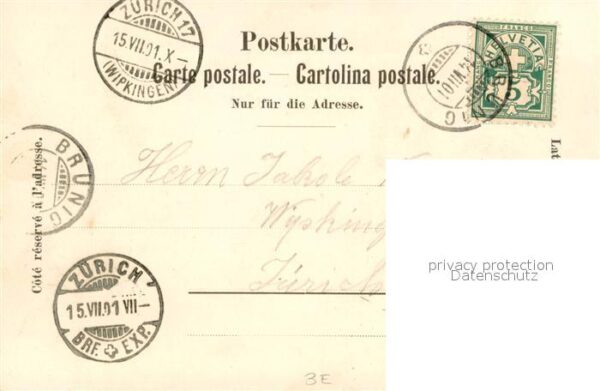 ZÜRICH 17
15.VII.01.X–
(WIPKINGEN)
Postkarte.
Carte postale. — Cartolina postale.
Nur für die Adresse.
BRÜNIG
FRANCO
HELVETIA
5
BRÜNIG
Côté réservé à l'adresse.
Lat
Herrn
Zürich
ZÜRICH 1
15.VII.01 VII–
BRF. EXP.
privacy protection
3E